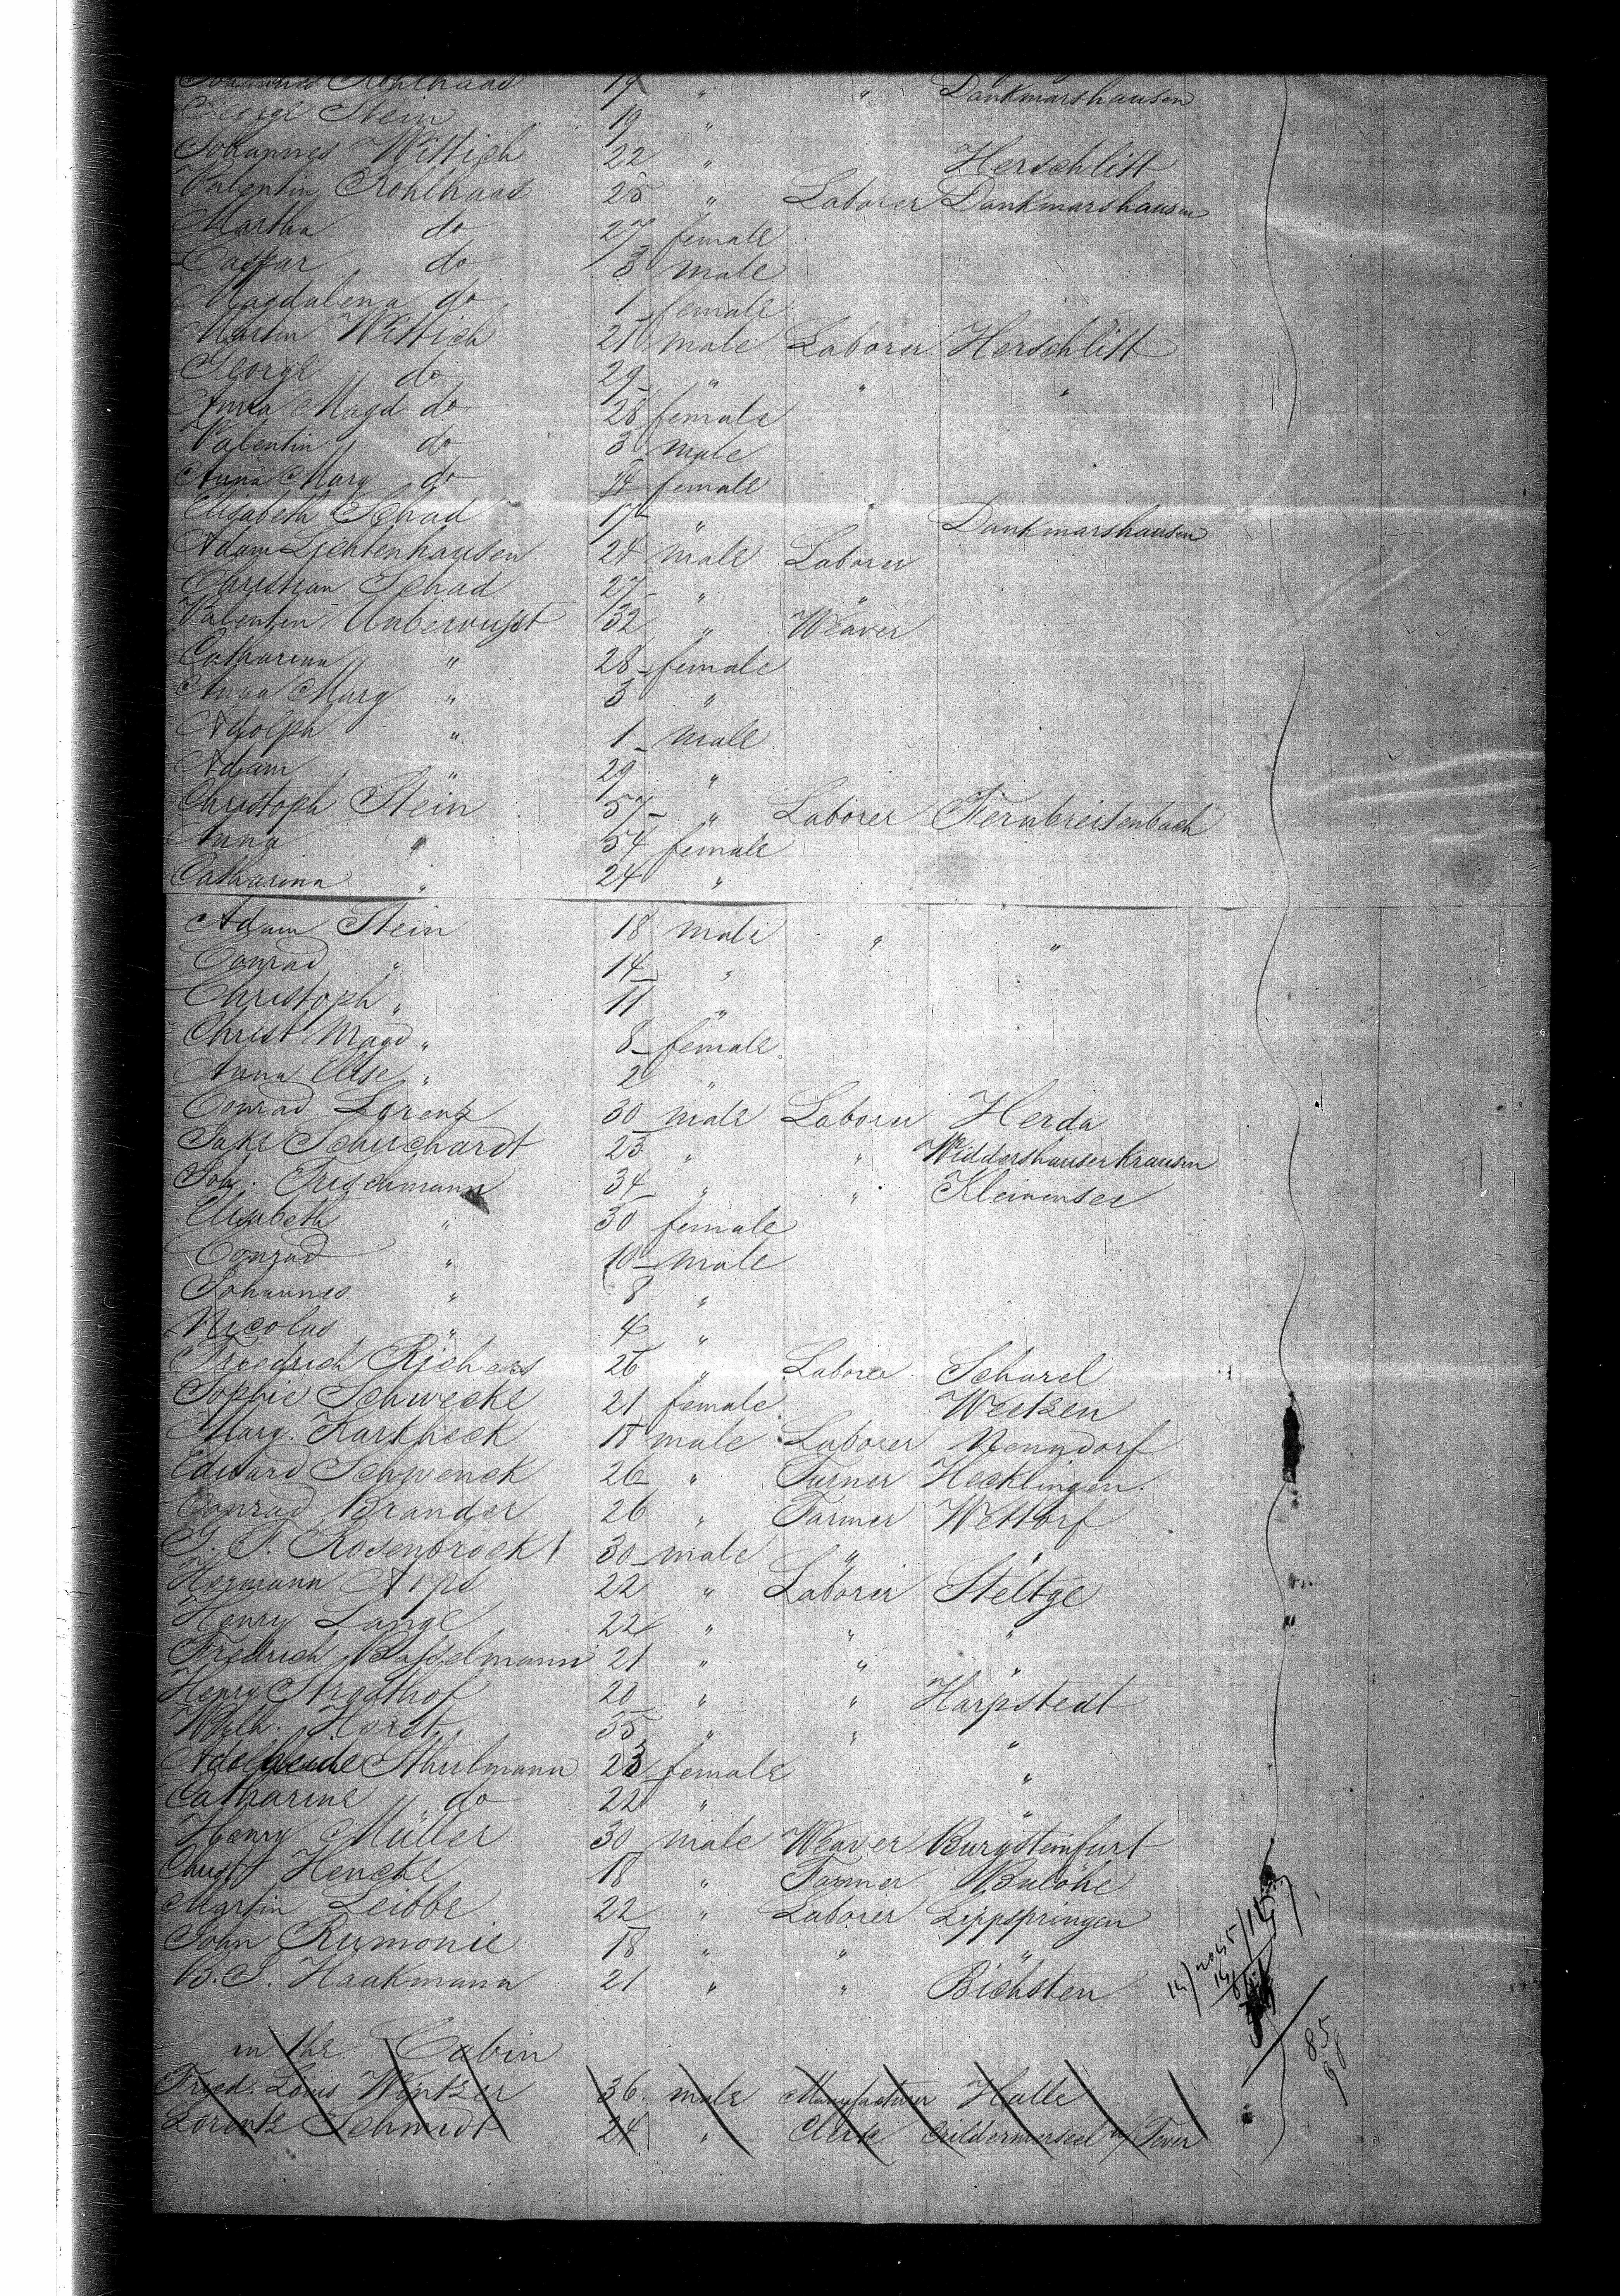 Johannes Kohlhaas 19 " " Dankmarshausen
George Stein 19 "
Johannes Wittich 22 " Herschlitt
Valentin Kohlhaas 25 " Laborer Dankmarshausen
Martha do 27 female
Caspar do 3 male
Magdalena do 1 female
Martin Wittich 21 male Laborer Herschlitt
George do 29 " " "
Anna Magd do 28 female
Valentin do 3 male
Anna Marg do female
Elisabeth Schad 17 " Dankmarshausen
Adam Lichtenhausen 24 male Laborer
Christian Schad 27 " "
Valentin Unbewusst 32 " Weaver
Catharina " 28 female
Anna Marg " 3 "
Adolph " 1 male
Adam " 29 "
Christoph Stein 57 " Laborer Fernbreitenbach
Anna " 54 female
Catharina " 24 "
Adam Stein 18 male " "
Conrad " 14 "
Christoph " 11 "
Christ Magd " 8 female
Anna Elise " 2 "
Conrad Lorenz 30 male Laborer Herda
Jake Schuchardt 23 " " Widdershauser Krausen
Joh. Frischmann 34 " " Kleinensee
Elisabeth " 30 female
Conrad " 10 male
Johannes " 8 "
Nicolas " 4 "
Friedrich Richers 26 " Laborer Scharel
Sophie Schwecke 21 female Wetzen
Marg. Kartheck 18 male Laborer Nenndorf
Edward Schwenck 26 " Turner Hecklingen
Conrad Brander 26 " Farmer Wettorf
G. F. Rosenbrock 30 male " "
Hermann Arps 22 " Laborer Steltge
Henry Lange 22 " " "
Fredrich Busselmann 21 " " "
Henry Strothof 20 " " Harpstedt
Wilh. Horst 35 " " "
Adelheide Sthulmann 23 female "
Catharine do 22 " "
Henry Müller 30 male Weaver Burgsteinfurt
Christ Hencke 18 " Farmer
Martin Leibbe 22 " Laborer Lippspringen
John Rumonie 18 " " "
B. S. Haakmann 21 " " Bichsten
in the Cabin
Fried. Louis Wintzer 36 male Manufacturer Halle
Lorentz Schmidt 24 " Clerk Jever
85
98